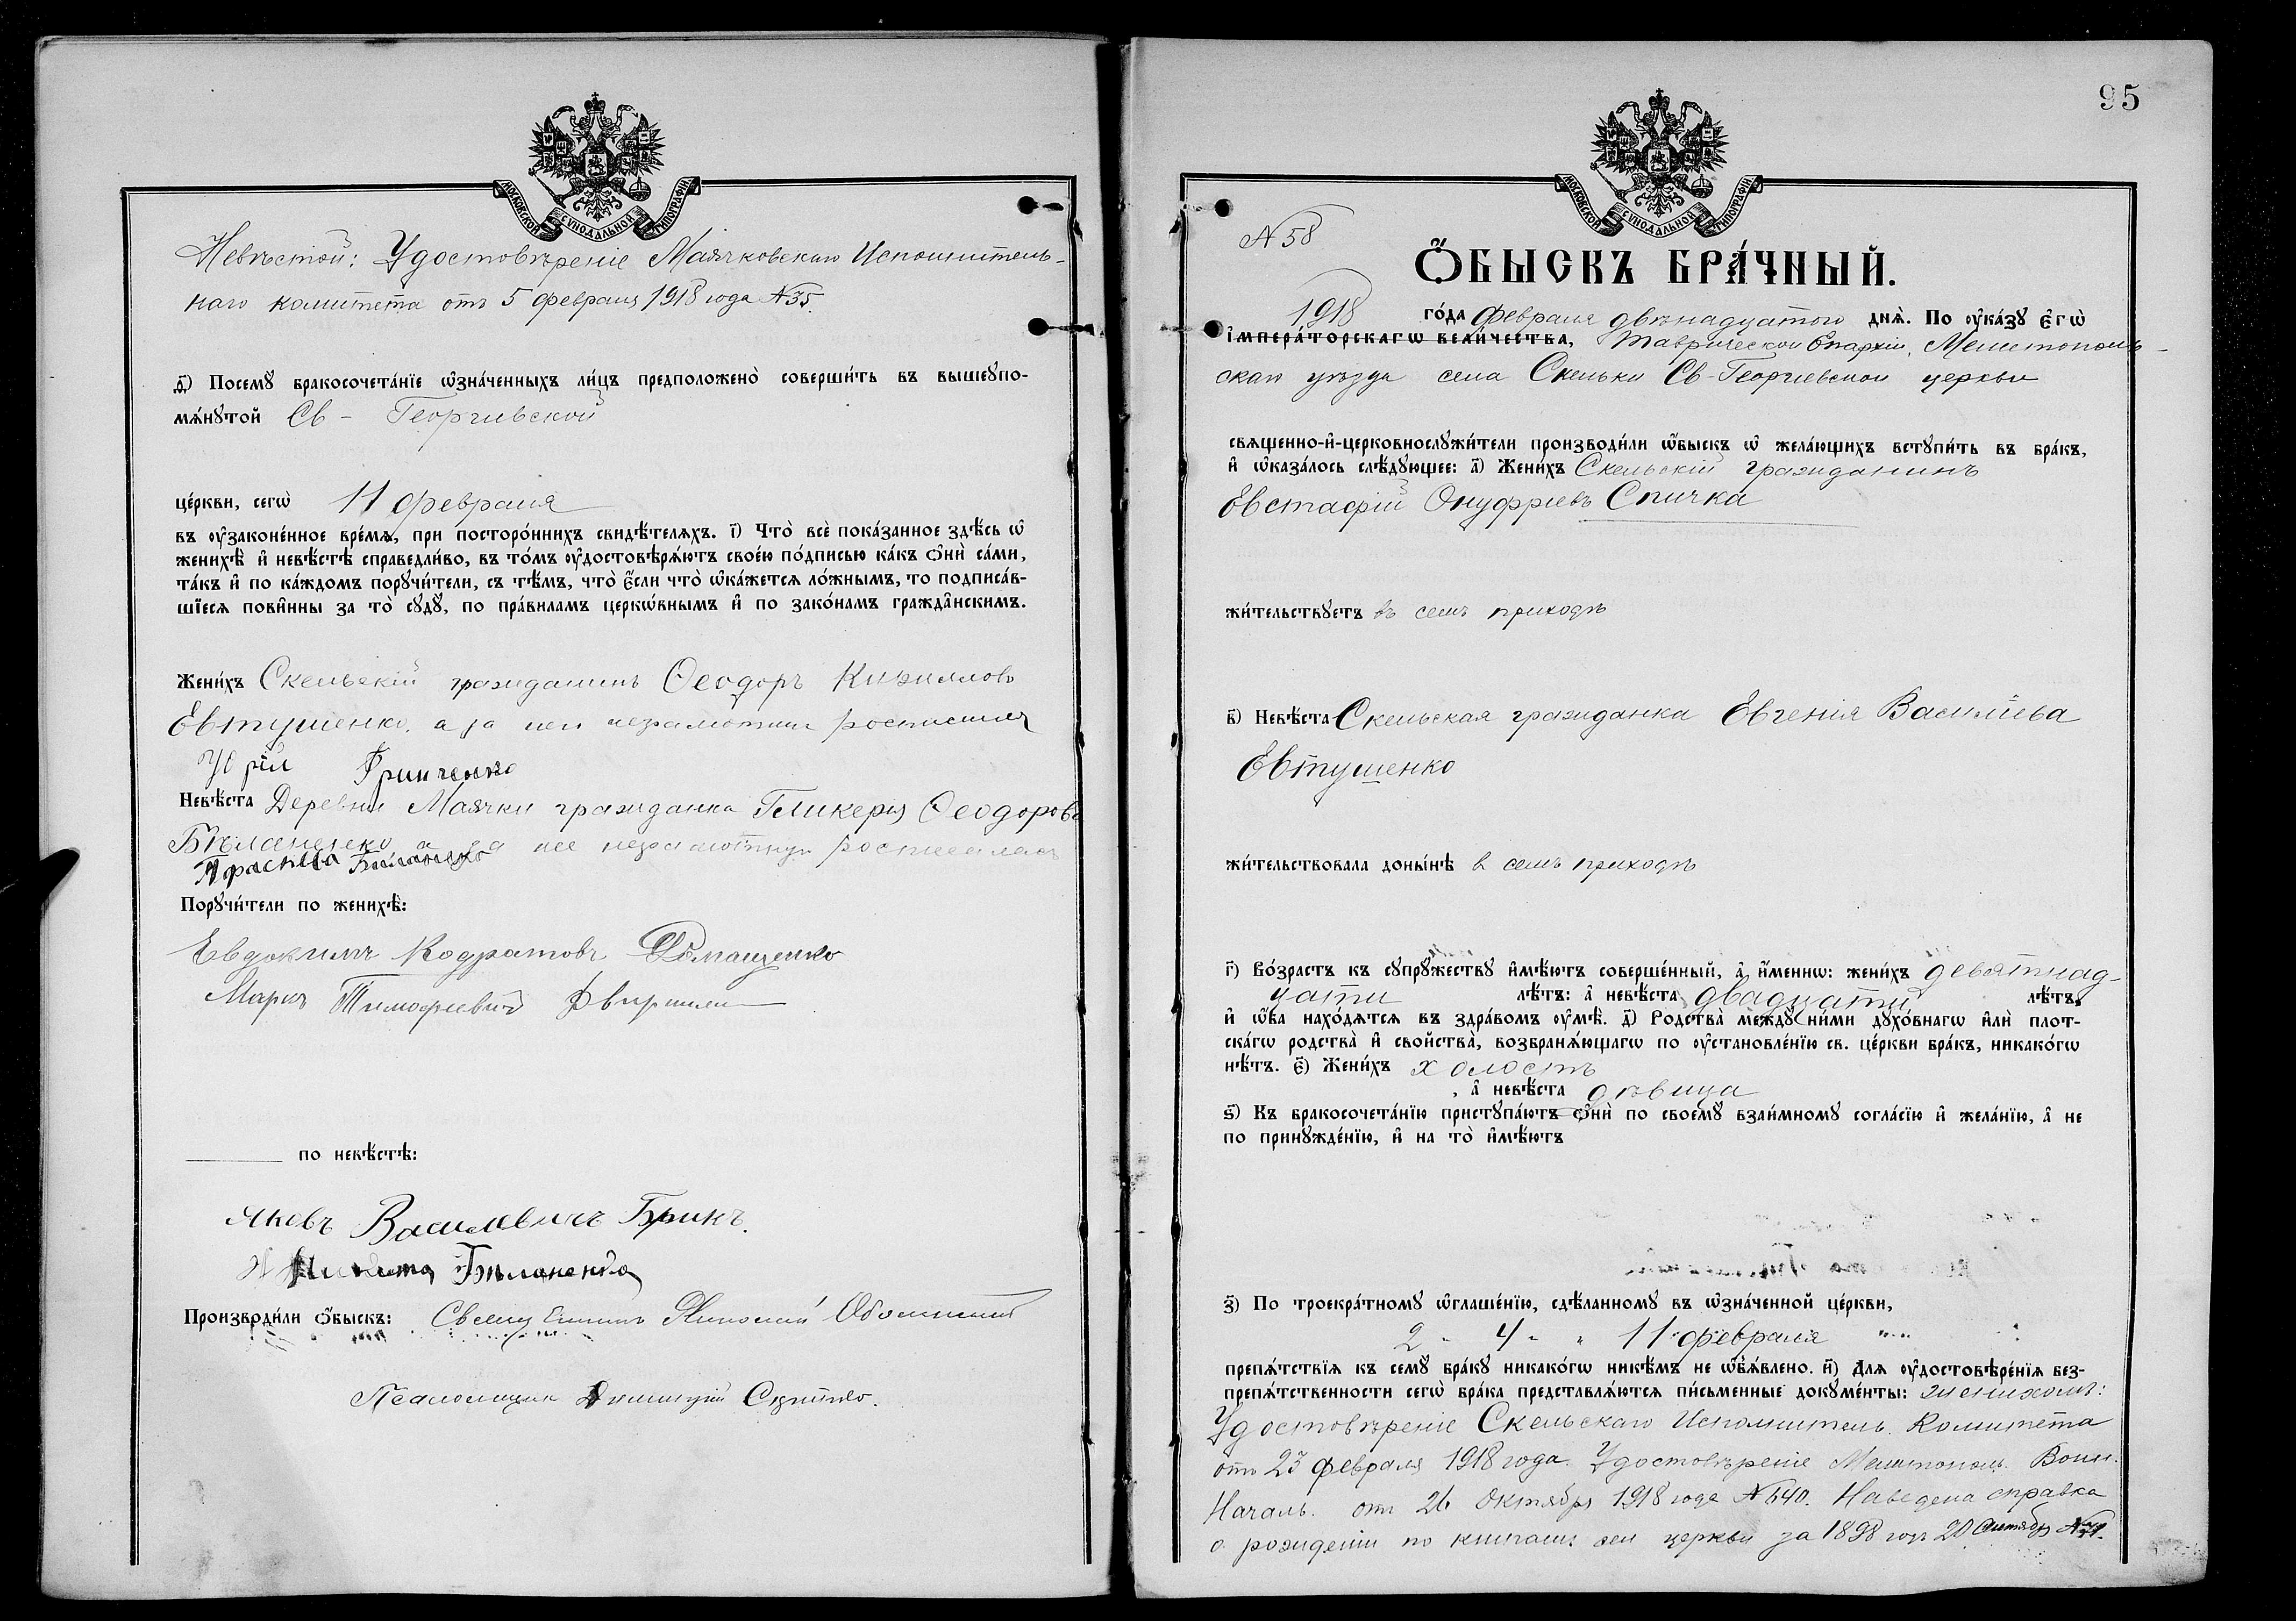 МОСКОВСКОЙ СѴНОДАЛЬНОЙ ТИПОГРАФІИ.
Невѣстой: Удостовѣреніе Маячковскаго Исполнитель-
наго комитета отъ 5 февраля 1918 года №35.
д҃) Посемꙋ бракосочета́нїе ѡ҆зна́ченныхъ ли́цъ предположено̀ соверши́ть въ вышеꙋпо-
мѧ́нꙋтой Св - Георгіевской
це́ркви, сегѡ̀ 11 февраля
въ ᲂу҆законе́нное вре́мѧ, при посторо́ннихъ свидѣ́телѧхъ. і҃) Что̀ всѐ пока́занное здѣ́сь ѡ҆
женихѣ̀ и҆ невѣ́стѣ справедли́во, въ то́мъ ᲂу҆достовѣрѧ́ютъ свое́ю по́дписью ка́къ ѻ҆нѝ са́ми,
та́къ и҆ по ка́ждомъ порꙋчи́тели, съ тѣ́мъ, что̀ є҆́сли что̀ ѡ҆ка́жетсѧ ло́жнымъ, то подписа́в-
шїесѧ пови́нны за то̀ сꙋдꙋ̀, по пра́виламъ церкѡ́внымъ и҆ по зако́намъ гражда́нскимъ.
Жени́хъ Скельскій гражданинъ Ѳеодоръ
Евтушенко, а за него неграмотнаго росписался
Гринченко
Невѣ́ста Деревни Маячки гражданка Гликерія Ѳеодорова
Бѣланенко, а за нее неграмотную росписалась
Прасковья Биланенко
Порꙋчи́тели по женихѣ̀:
Евдокимъ Кодратовъ Домащенко
Маркъ Тимофіевичъ
по невѣ́стѣ:
Яковъ Василевичъ Брикъ.
Никита Бѣланенко
Производи́ли ѻ҆́быскъ: Священникъ Николай
Псаломщикъ Димитрій
95
МОСКОВСКОЙ СѴНОДАЛЬНОЙ ТИПОГРАФІИ.
№ 58
Ѻ҆́БЫСКЪ БРА́ЧНЫЙ.
1918 го́да февраля двѣнадцатого днѧ̀. По ᲂу҆ка́зꙋ є҆гѡ̀
і҆мпера́торскагѡ вели́чества, Таврической Епархіи, Мелитополь-
скаго уѣзда села Скельки Св-Георгіевской церкви
свѧщенно-и҆-церковнослꙋжи́тели производи́ли ѡ҆́быскъ ѡ҆ жела́ющихъ встꙋпи́ть въ бра́къ,
и҆ ѡ҆каза́лось слѣ́дꙋющее: а҃) Жени́хъ Скельскій гражданинъ
Евстафій Онуфріевъ Спичка
жи́тельствꙋетъ въ семъ приходѣ
в҃) Невѣ́ста Скельская гражданка Евгенія Василіева
Евтушенко
жи́тельствовала доны́нѣ в семъ приходѣ
г҃) Во́зрастъ къ сꙋпрꙋ́жествꙋ и҆мѣ́ютъ соверше́нный, а҆ и҆́меннѡ: жени́хъ девятнад-
цати лѣ́тъ: а҆ невѣ́ста двадцати лѣ́тъ,
и҆ ѡ҆́ба нахо́дѧтсѧ въ здра́вомъ ᲂу҆мѣ̀. д҃) Родства̀ междꙋ ни́ми дꙋхо́внагѡ и҆лѝ плот-
ска́гѡ родства̀ и҆ сво́йства̀, возбранѧ́ющагѡ по ᲂу҆становле́нїю св. це́ркви бра́къ, никако́гѡ
нѣ́тъ. є҃) Жени́хъ холостъ
, а҆ невѣ́ста дѣвица
ѕ҃) Къ бракосочета́нїю пристꙋпа́ютъ ѻ҆нѝ по своемꙋ̀ взаи́мномꙋ согла́сїю и҆ жела́нїю, а҆ не
по принꙋжде́нїю, и҆ на то̀ и҆мѣ́ютъ
з҃) По троекра́тномꙋ ѡ҆глаше́нїю, сдѣ́ланномꙋ въ ѡ҆зна́ченной це́ркви,
2 " 4 " " 11 февраля
препѧ́тствїѧ къ семꙋ̀ бра́кꙋ никако́гѡ никѣ́мъ не ѡ҆б̾ѧ́влено. и҃) Длѧ ᲂу҆достовѣре́нїѧ без-
препѧ́тственности сегѡ̀ бра́ка представлѧ́ютсѧ пи́сьменные докꙋме́нты: женихомъ:
Удостовѣреніе Скельскаго Исполнитель. Комитета
отъ 23 февраля 1918 года. Удостовѣреніе Мелитополь. Воин.
Началь. отъ 26 Октября 1918 года № 640. Наведена справка
о рожденіи по книгамъ сей церкви за 1898 годъ 20